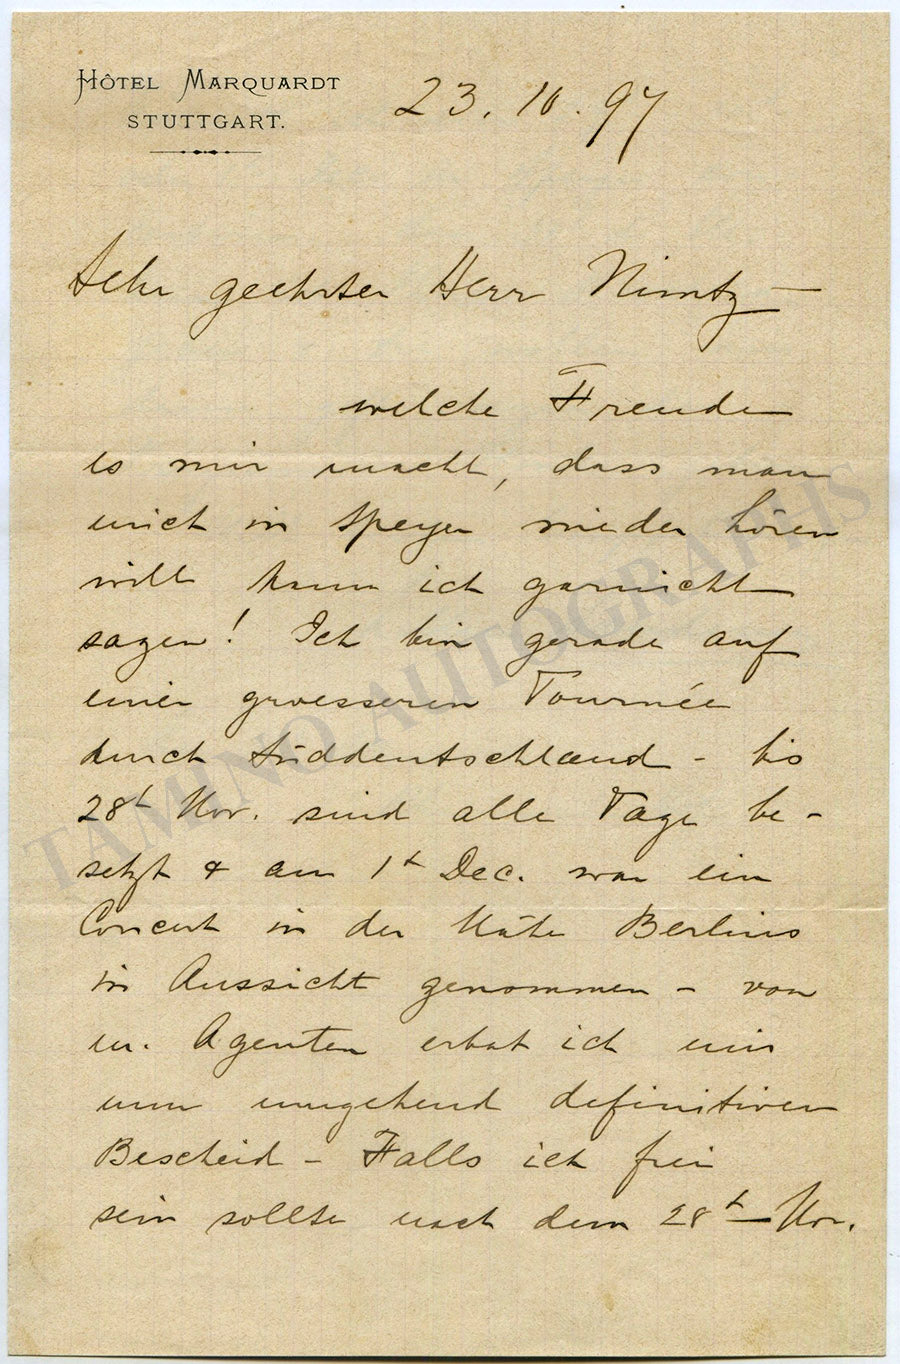 HÔTEL MARQUARDT
STUTTGART.
23. 10. 97
Sehr geehrter Herr Nimtz —
welche Freude
es mir macht, dass man
mich in Speyer wieder hören
will kann ich garnicht
sagen! Ich bin gerade auf
einer groesseren Tournée
durch Süddeutschland - bis
28t Nov. sind alle Tage be-
setzt & am 1t Dec. war ein
Concert in der Nähe Berlins
in Aussicht genommen - von
m. Agenten erbat ich mir
nun umgehend definitiven
Bescheid - Falls ich frei
sein sollte nach dem 28t Nov.
TAMINO AUTOGRAPHS